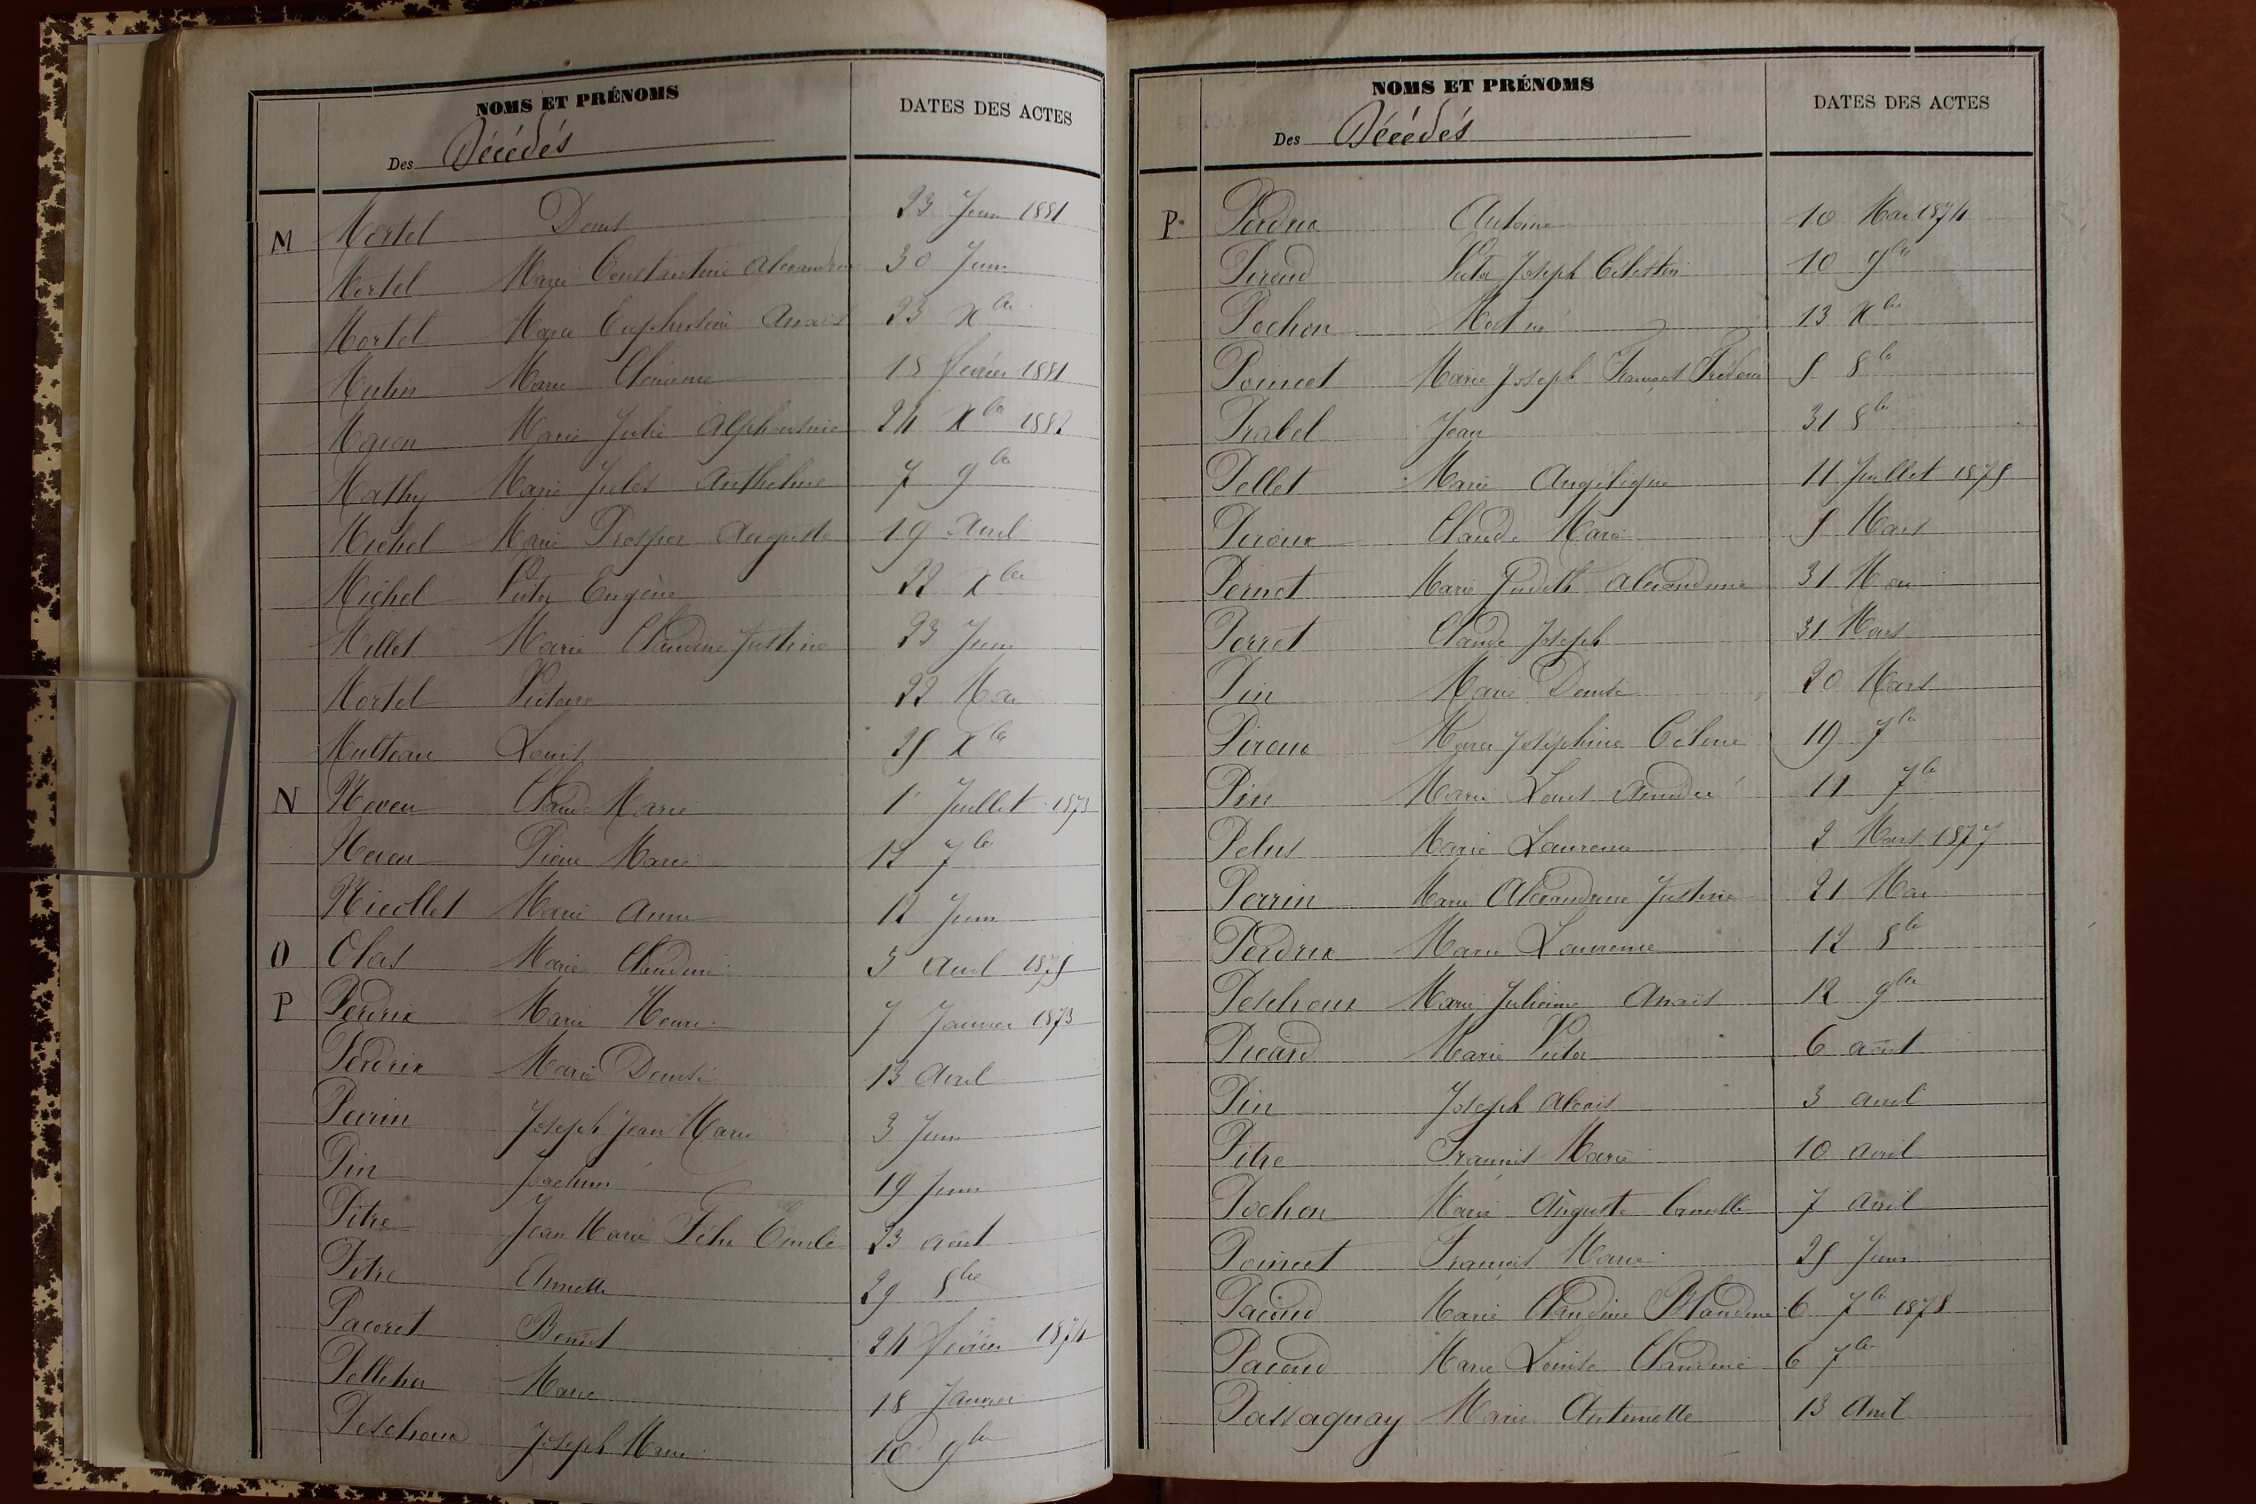 NOMS ET PRÉNOMS DATES DES ACTES
Des Décédés
M Mortel Denis 23 Juin 1881
Mortel Marie Constantine Alexandrine 30 Juin
Mortel Marie Euphrosine Anaïs 23 Xbre
Marie Clémence 18 février 1881
Marie Julie Alphonsine 24 Xbre 1882
Mathy Marie Jules Anthelme 7 9bre
Michel Marie Prosper Auguste 19 Avril
Michel Victor Eugène 22 Xbre
Millet Marie Claudine Justine 23 Juin
Mortel Victoire 22 Mai
Louis 25 Xbre
N Neveu Claude Marie 1er Juillet 1873
Neveu Pierre Marie 12 7bre
Nicollet Marie Anne 12 Juin
O Olas Marie Claudine 3 Avril 1875
P Perdrix Marie Henri 7 Janvier 1873
Perdrix Marie Denise 13 Avril
Perrin Joseph Jean Marie 3 Juin
Pin Joachim 19 Juin
Pitre Jean Marie Félix Emile 23 Août
Pitre Annette 29 8bre
Pacoret Benoit 24 février 1874
Marie 18 Janvier
Peschoux Joseph Marie 10 9bre
NOMS ET PRÉNOMS DATES DES ACTES
Des Décédés
P Perdrix Antoine 10 Mai 1874
Victor Joseph Célestin 10 9bre
Pochon 13 Xbre
Poincet Marie Joseph François 5 8bre
Prabel Jean 31 8bre
Pellet Marie Angélique 11 Juillet 1875
Piroux Claude Marie 5 Mars
Marie Judith Alexandrine 31 Mai
Perret Claude Joseph 31 Mars
Pin Marie Denise 20 Mars
Piroux Marie Joséphine 19 7bre
Pin Marie Louis 11 7bre
Pelus Marie Laurence 2 Mars 1877
Perrin Marie Alexandrine Justine 21 Mai
Perdrix Marie Laurence 12 8bre
Peschoux Marie Julienne Anaïs 12 9bre
Picard Marie Victor 6 août
Pin Joseph Alexis 3 avril
Pitre François Marie 10 avril
Pochon Marie Auguste Camille 7 avril
Poincet François Marie 25 Juin
Pacoud Marie Claudine Blandine 6 7bre 1878
Pacoud Marie Louise Claudine 6 7bre
Passaquay Marie Antoinette 13 Avril